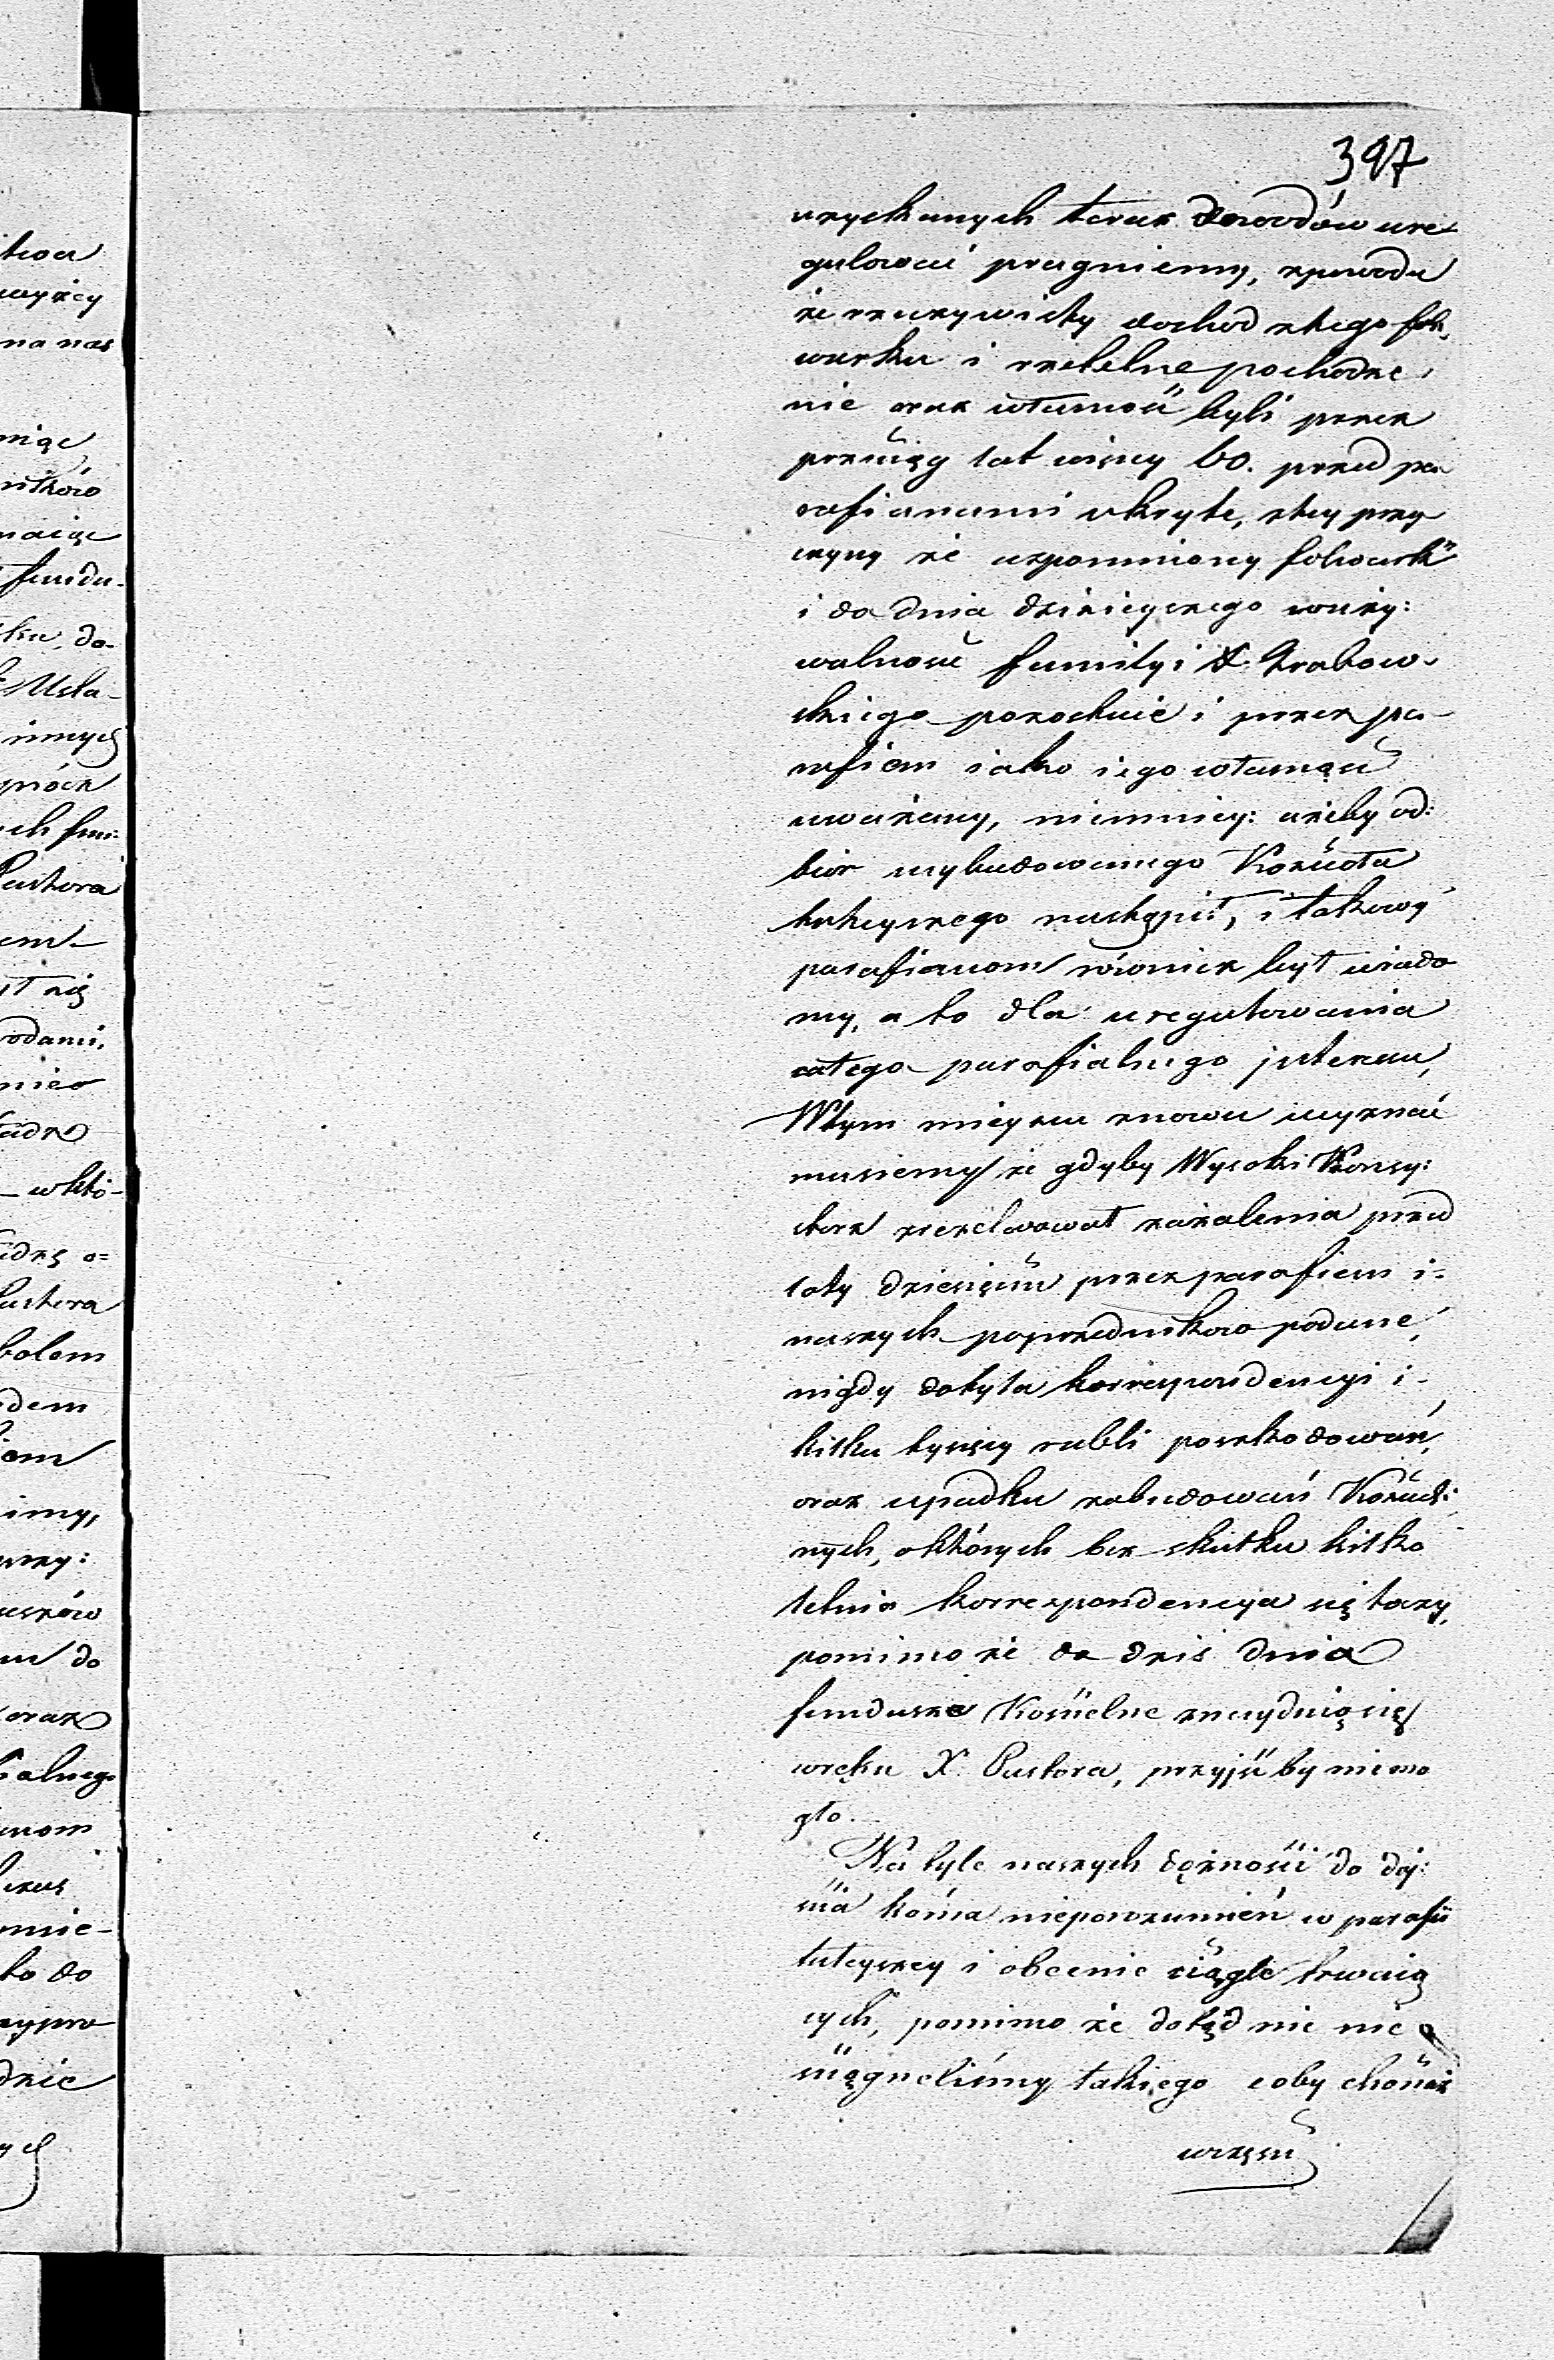 397
uzyskanych teraz dowodów ure
gulować pragniemy, zpowodu
że rzeczywisty dochod ztego fol,
warku i rzetelne pochodze,
nie oraz własność byli przez
przeciąg lat więcy 60. przed pa
rafianami ukryte, ztey przy
czyny że wspomniony folwark
i do dnia dzisieyszego
walność familyi X. Grabow-
skiego pozostaie i przez pa-
rafiem iako iego własność
uważany, niemniey: ażeby od:
biór wybudowanego Kościoła
tuteyszego nastąpił, i takowy
parafianom równiez był wiado
my, a to dla uregulowania
całego parafialnego interesu,
Wtym mieyscu znowu wyznać
musiemy że gdyby Wysoki Konsy:
storz zażalenia przed
laty dziesięciu przez parafiem i=
naszych poprzedników podane,
nigdy dotyla korrespondencyi i-
kilku tysięcy rubli poszkodowań,
oraz upadku zabudowań Kościel:
nych, októrych bez skutku kilko
letnia korrespondencya się toczy,
pomimo że do dzis dnia
fundusze Kościelne znaydują się
wręku X. Pastora, przyjść by niemo
gło.
Na tyle naszych dążności do doj:
scia końca nieporozumień w parafii
tuteyszey i obecnie ciągle trwaią
cych, pomimo że dotąd nic nie o
siągneliśmy takiego coby chociaż
wczęsci